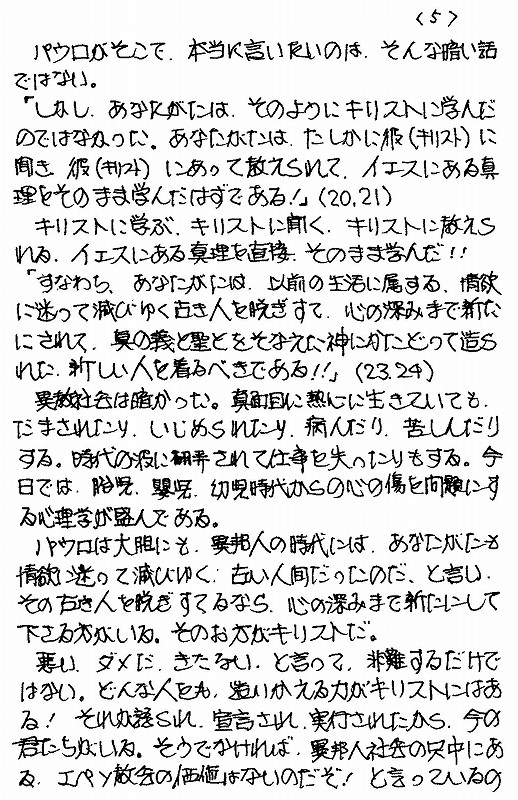 〈5〉
パウロがそこで、本当に言いたいのは、そんな暗い話
ではない。
「しかし、あなたがたは、そのようにキリストに学んだ
のではなかった。あなたがたは、たしかに彼（キリスト）に
聞き、彼（キリスト）にあって教えられて、イエスにある真
理をそのまま学んだはずである!」(20,21)
キリストに学ぶ、キリストに聞く、キリストに教えら
れる、イエスにある真理を直接、そのまま学んだ!!
「すなわち、あなたがたは、以前の生活に属する、情欲
に迷って滅びゆく古き人を脱ぎすて、心の深みまで新た
にされて、真の義と聖とをそなえた神にかたどって造ら
れた、新しい人を着るべきである!!」(23.24)
異教社会は暗かった。真面目に熱心に生きていても、
だまされたり、いじめられたり、病んだり、苦しんだり
する。時代の波に翻弄されて仕事を失ったりもする。今
日では、胎児、嬰児、幼児時代からの心の傷を問題にす
る心理学が盛んである。
パウロは大胆にも、異邦人の時代には、あなたがたも
情欲に迷って滅びゆく、古い人間だったのだ、と言い、
その古き人を脱ぎすてるなら、心の深みまで新たにして
下さる方がいる。そのお方がキリストだ。
悪い、ダメだ、きたない、と言って、非難するだけで
はない。どんな人をも、造りかえる力がキリストにはあ
る! それが語られ、宣言され、実行されたから、今の
君たちがいる。そうでなければ、異邦人社会の只中にあ
る、エペソ教会の価値はないのだぞ! と言っているの